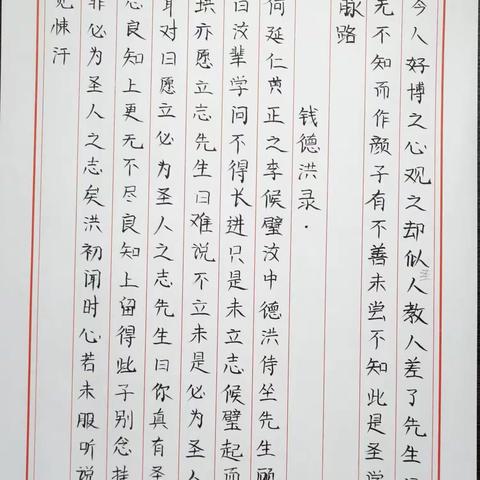 今人好博之心观之却似人教人差了先生
圣
无不知而作颜子有不善未尝不知此是圣学
脉路
钱德洪录.
何延仁黄正之李候璧汝中德洪侍坐先生顾
曰汝辈学问不得长进只是未立志候璧起而
珙亦愿立志先生曰难说不立未是必为圣人
对曰愿立必为圣人之志先生曰你真有圣
良知上更无不尽良知上留得些子别念挂
非必为圣人之志矣洪初闻时心若未服听说
悚汗